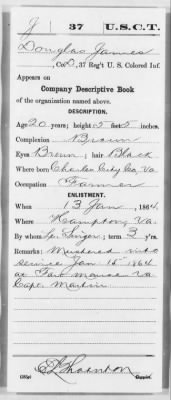 J 37 U.S.C.T.
Douglas James
, Co. D, 37 Reg't U. S. Colored Inf.
Appears on
Company Descriptive Book
of the organization named above.
DESCRIPTION.
Age 20 years; height 5 feet 5 inches.
Complexion Brown
Eyes Brown; hair Black
Where born Charles City Co, Va
Occupation Farmer
ENLISTMENT.
When 13 Jan, 1864.
Where Hampton, Va.
By whom Singer; term 3 y'rs.
Remarks: Mustered into
service Jan 15" 1864
at Fort Monroe Va
Capt. Martin
Thornton
Copyist.